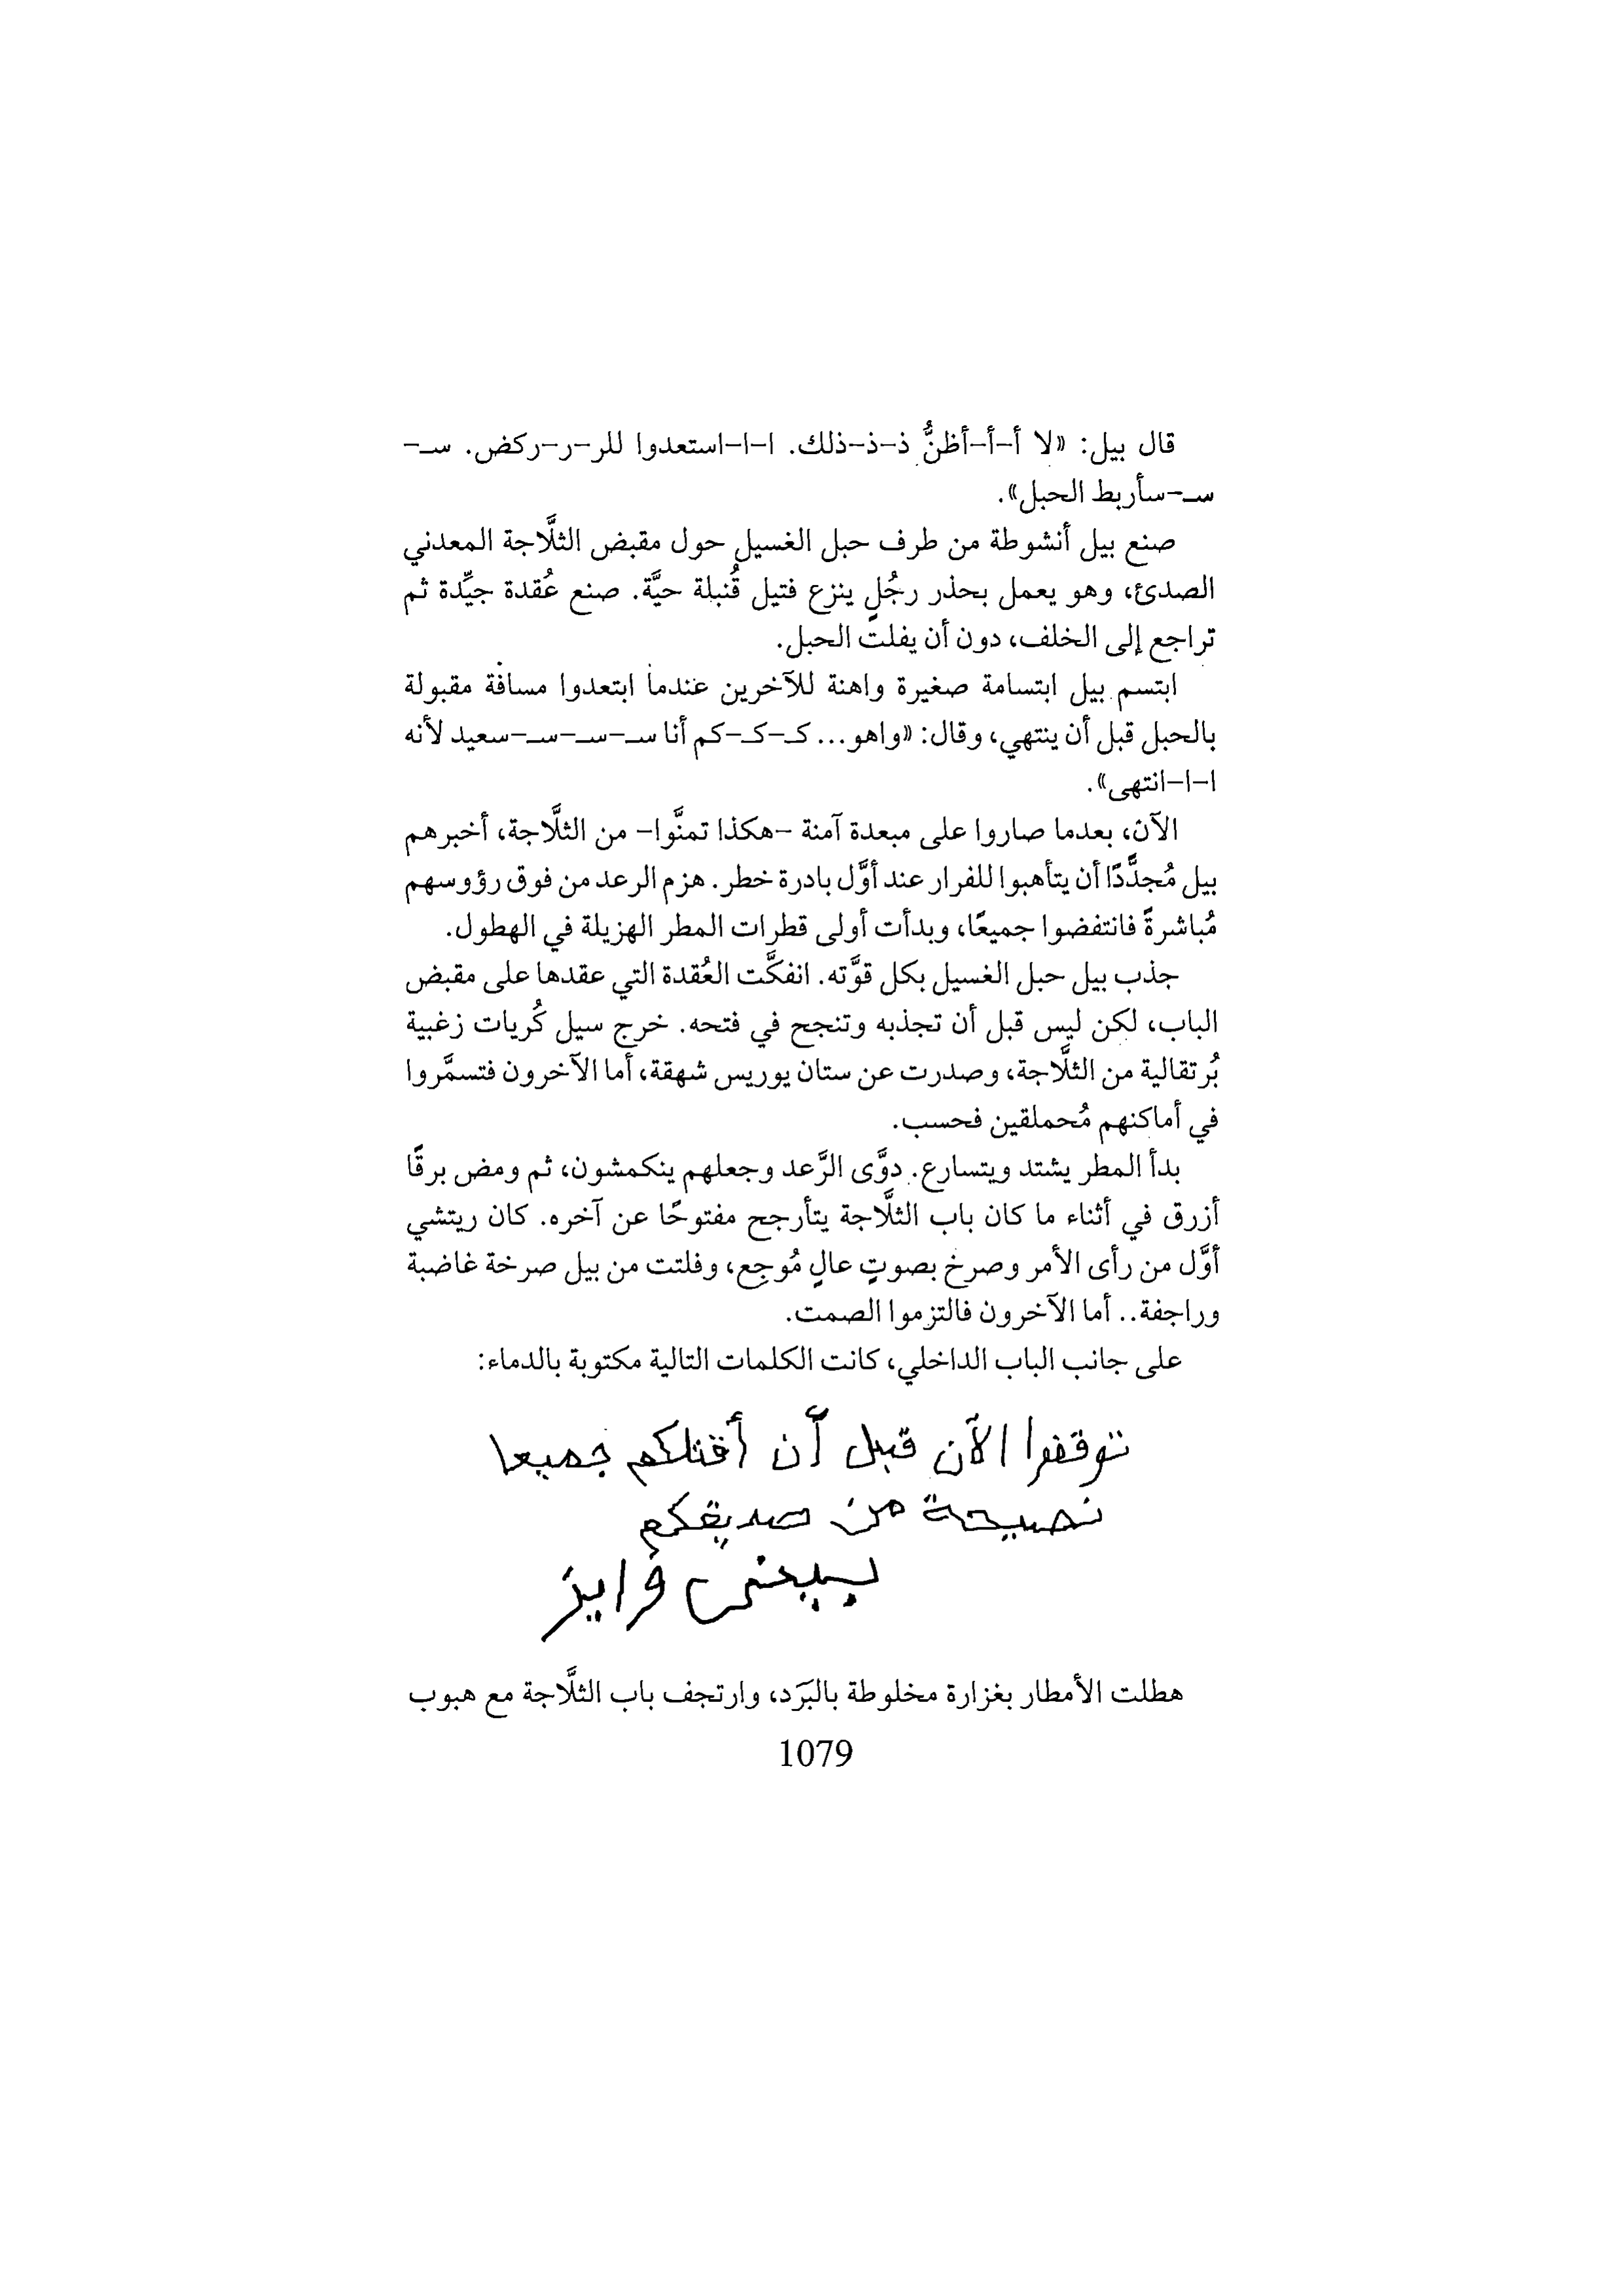 قال بيل: «لا أ–أ–أظنُّ ذ–ذ–ذلك. ا–ا–استعدوا للر–ر–ركض. سـ–
سـ–سأربط الحبل».
صنع بيل أنشوطة من طرف حبل الغسيل حول مقبض الثلَّاجة المعدني
الصدئ، وهو يعمل بحذر رجُلٍ ينزع فتيل قُنبلة حيَّة. صنع عُقدة جيِّدة ثم
تراجع إلى الخلف، دون أن يفلت الحبل.
ابتسم بيل ابتسامة صغيرة واهنة للآخرين عندما ابتعدوا مسافة مقبولة
بالحبل قبل أن ينتهي، وقال: «واهو... كـ–كـ–كم أنا سـ–سـ–سـ–سعيد لأنه
ا–ا–انتهى».
الآن، بعدما صاروا على مبعدة آمنة –هكذا تمنَّوا– من الثلَّاجة، أخبرهم
بيل مُجدَّدًا أن يتأهبوا للفرار عند أوَّل بادرة خطر. هزم الرعد من فوق رؤوسهم
مُباشرةً فانتفضوا جميعًا، وبدأت أولى قطرات المطر الهزيلة في الهطول.
جذب بيل حبل الغسيل بكل قوَّته. انفكَّت العُقدة التي عقدها على مقبض
الباب، لكن ليس قبل أن تجذبه وتنجح في فتحه. خرج سيل كُريات زغبية
بُرتقالية من الثلَّاجة، وصدرت عن ستان يوريس شهقة، أما الآخرون فتسمَّروا
في أماكنهم مُحملقين فحسب.
بدأ المطر يشتد ويتسارع. دوَّى الرَّعد وجعلهم ينكمشون، ثم ومض برقًا
أزرق في أثناء ما كان باب الثلَّاجة يتأرجح مفتوحًا عن آخره. كان ريتشي
أوَّل من رأى الأمر وصرخ بصوتٍ عالٍ مُوجِع، وفلتت من بيل صرخة غاضبة
وراجفة.. أما الآخرون فالتزموا الصمت.
على جانب الباب الداخلي، كانت الكلمات التالية مكتوبة بالدماء:
توقفوا الآن قبل أن أقتلكم جميعا
نصيحة من صديقكم
بيبجنى وايز
هطلت الأمطار بغزارة مخلوطة بالبَرَد، وارتجف باب الثلَّاجة مع هبوب
1079